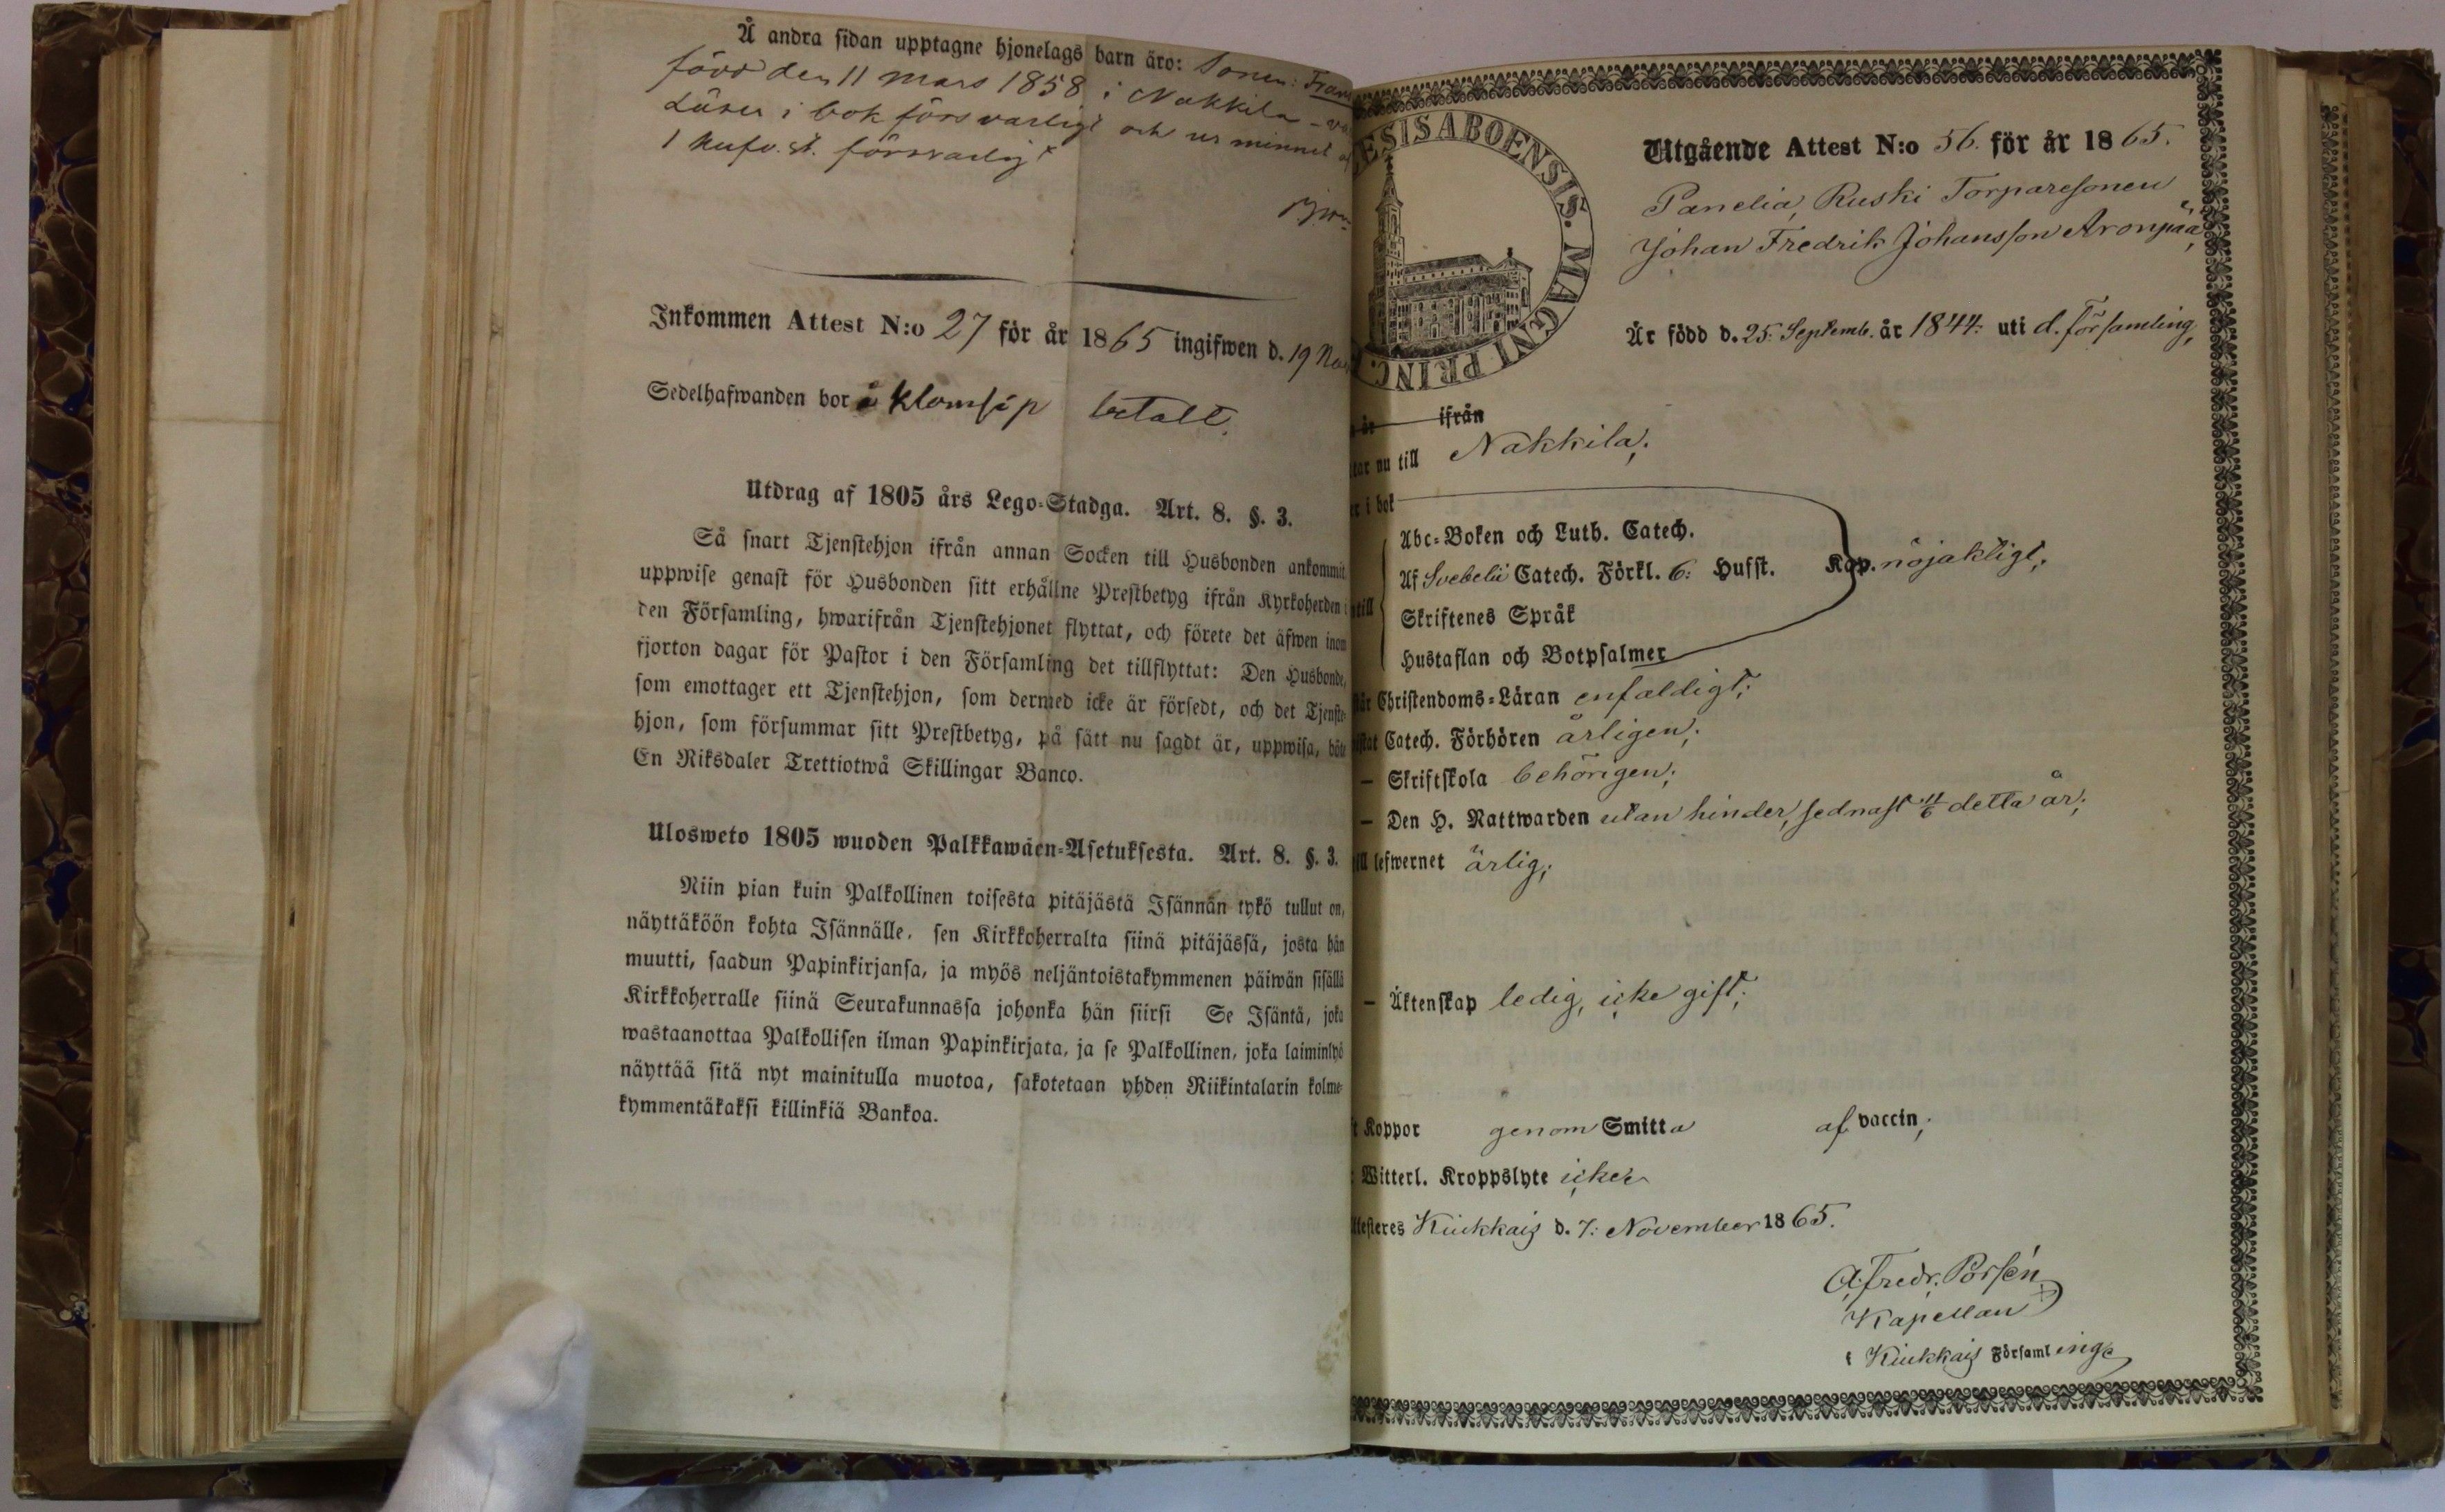 Å andra sidan upptagne hjonelags barn äro: Sonen:
född den 11 mars 1858 i Nakkila
Läser i bok försvarligt och ur minnet
1 Hufv. st. försvarligt
Inkommen Attest N:o 27 för år 1865 ingifwen d. 19
Sedelhafwanden bor å Klomsip betalt.
Utdrag af 1805 års Lego-Stadga. Art. 8. §. 3.
Så snart Tjenstehjon ifrån annan Socken till Husbonden ankommit
uppwise genast för Husbonden sitt erhållne Prestbetyg ifrån Kyrkoherden i
den Församling, hwarifrån Tjenstehjonet flyttat, och förete det äfwen inom
fjorton dagar för Pastor i den Församling det tillflyttat: Den Husbonde,
som emottager ett Tjenstehjon, som dermed icke är försedt, och det Tjenste-
hjon, som försummar sitt Prestbetyg, på sätt nu sagdt är, uppwisa, böte
En Riksdaler Trettiotwå Skillingar Banco.
Ulosweto 1805 wuoden Palkkawäen-Asetuksesta. Art. 8. §. 3.
Niin pian kuin Palkollinen toisesta pitäjästä Isännän tykö tullut on,
näyttäköön kohta Isännälle, sen Kirkkoherralta siinä pitäjässä, josta hän
muutti, saadun Papinkirjansa, ja myös neljäntoistakymmenen päiwän sisällä
Kirkkoherralle siinä Seurakunnassa johonka hän siirsi Se Isäntä, joka
wastaanottaa Palkollisen ilman Papinkirjata, ja se Palkollinen, joka laiminlyö
näyttää sitä nyt mainitulla muotoa, sakotetaan yhden Riikintalarin kolme-
kymmentäkaksi killinkiä Bankoa.
ESIS ABOENSIS. MAGNI PRINC.
Utgående Attest N:o 56. för år 1865.
Panelia, Ruski Torparesonen
Johan Fredrik Johansson Aronpää,
Är född d. 25: Septemb. år 1844: uti d. församling,
ifrån
nu till Nakkila;
i bok
Abc-Boken och Luth. Catech.
Af Svebelii Catech. Förkl. 6: Hufst. Kap. nöjaktigt;
Skriftenes Språk
Hustaflan och Botpsalmer
Christendoms-Läran enfaldigt;
Catech. Förhören årligen;
— Skriftskola behörigen;
— Den H. Nattwarden utan hinder, sednast 11/6 detta år;
lefwernet ärlig;
— Äktenskap ledig, icke gift;
Koppor genom Smitta af vaccin;
Witterl. Kroppslyte icke
Kiukkais d. 7: November 1865.
A. Fredr. Porsén
Kapellan
i Kiukkais Församling